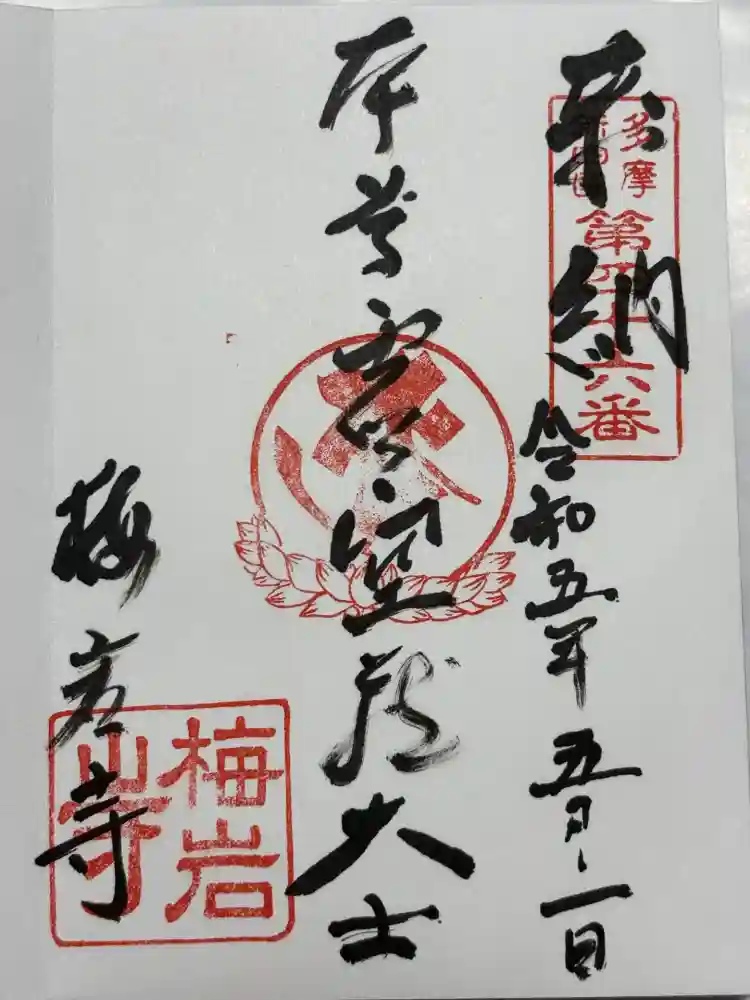 奉納
令和五年五月一日
多摩
第四十六番
本尊虚空蔵大士
梅岩寺
梅岩
山寺